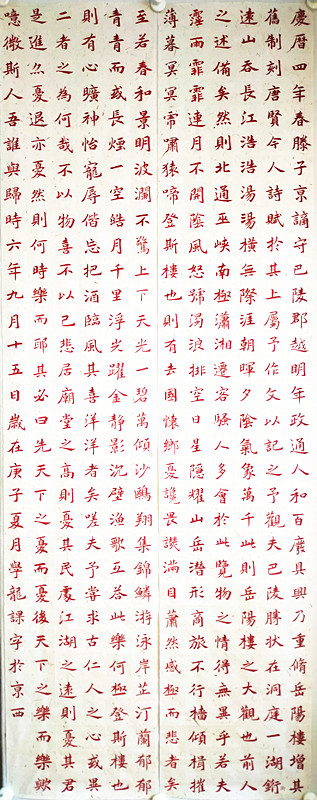 慶曆四年春滕子京謫守巴陵郡越明年政通人和百廢具興乃重脩岳陽樓增其
舊制刻唐賢今人詩賦於其上屬予作文以記之予觀夫巴陵勝狀在洞庭一湖銜
遠山吞長江浩浩湯湯橫無際涯朝暉夕陰氣象萬千此則岳陽樓之大觀也前人
之述備矣然則北通巫峽南極瀟湘遷客騷人多會於此覽物之情得無異乎若夫
霪雨霏霏連月不開陰風怒號濁浪排空日星隱耀山岳潛形商旅不行檣傾楫摧
薄暮冥冥虎嘯猿啼登斯樓也則有去國懷鄉憂讒畏譏滿目蕭然感極而悲者矣
至若春和景明波瀾不驚上下天光一碧萬頃沙鷗翔集錦鱗游泳岸芷汀蘭郁郁
青青而或長煙一空皓月千里浮光躍金靜影沉璧漁歌互答此樂何極登斯樓也
則有心曠神怡寵辱偕忘把酒臨風其喜洋洋者矣嗟夫予嘗求古仁人之心或異
二者之為何哉不以物喜不以己悲居廟堂之高則憂其民處江湖之遠則憂其君
是進亦憂退亦憂然則何時樂而耶其必曰先天下之憂而憂後天下之樂而樂歟
噫微斯人吾誰與歸時六年九月十五日歲在庚子夏月學龍課字於京西